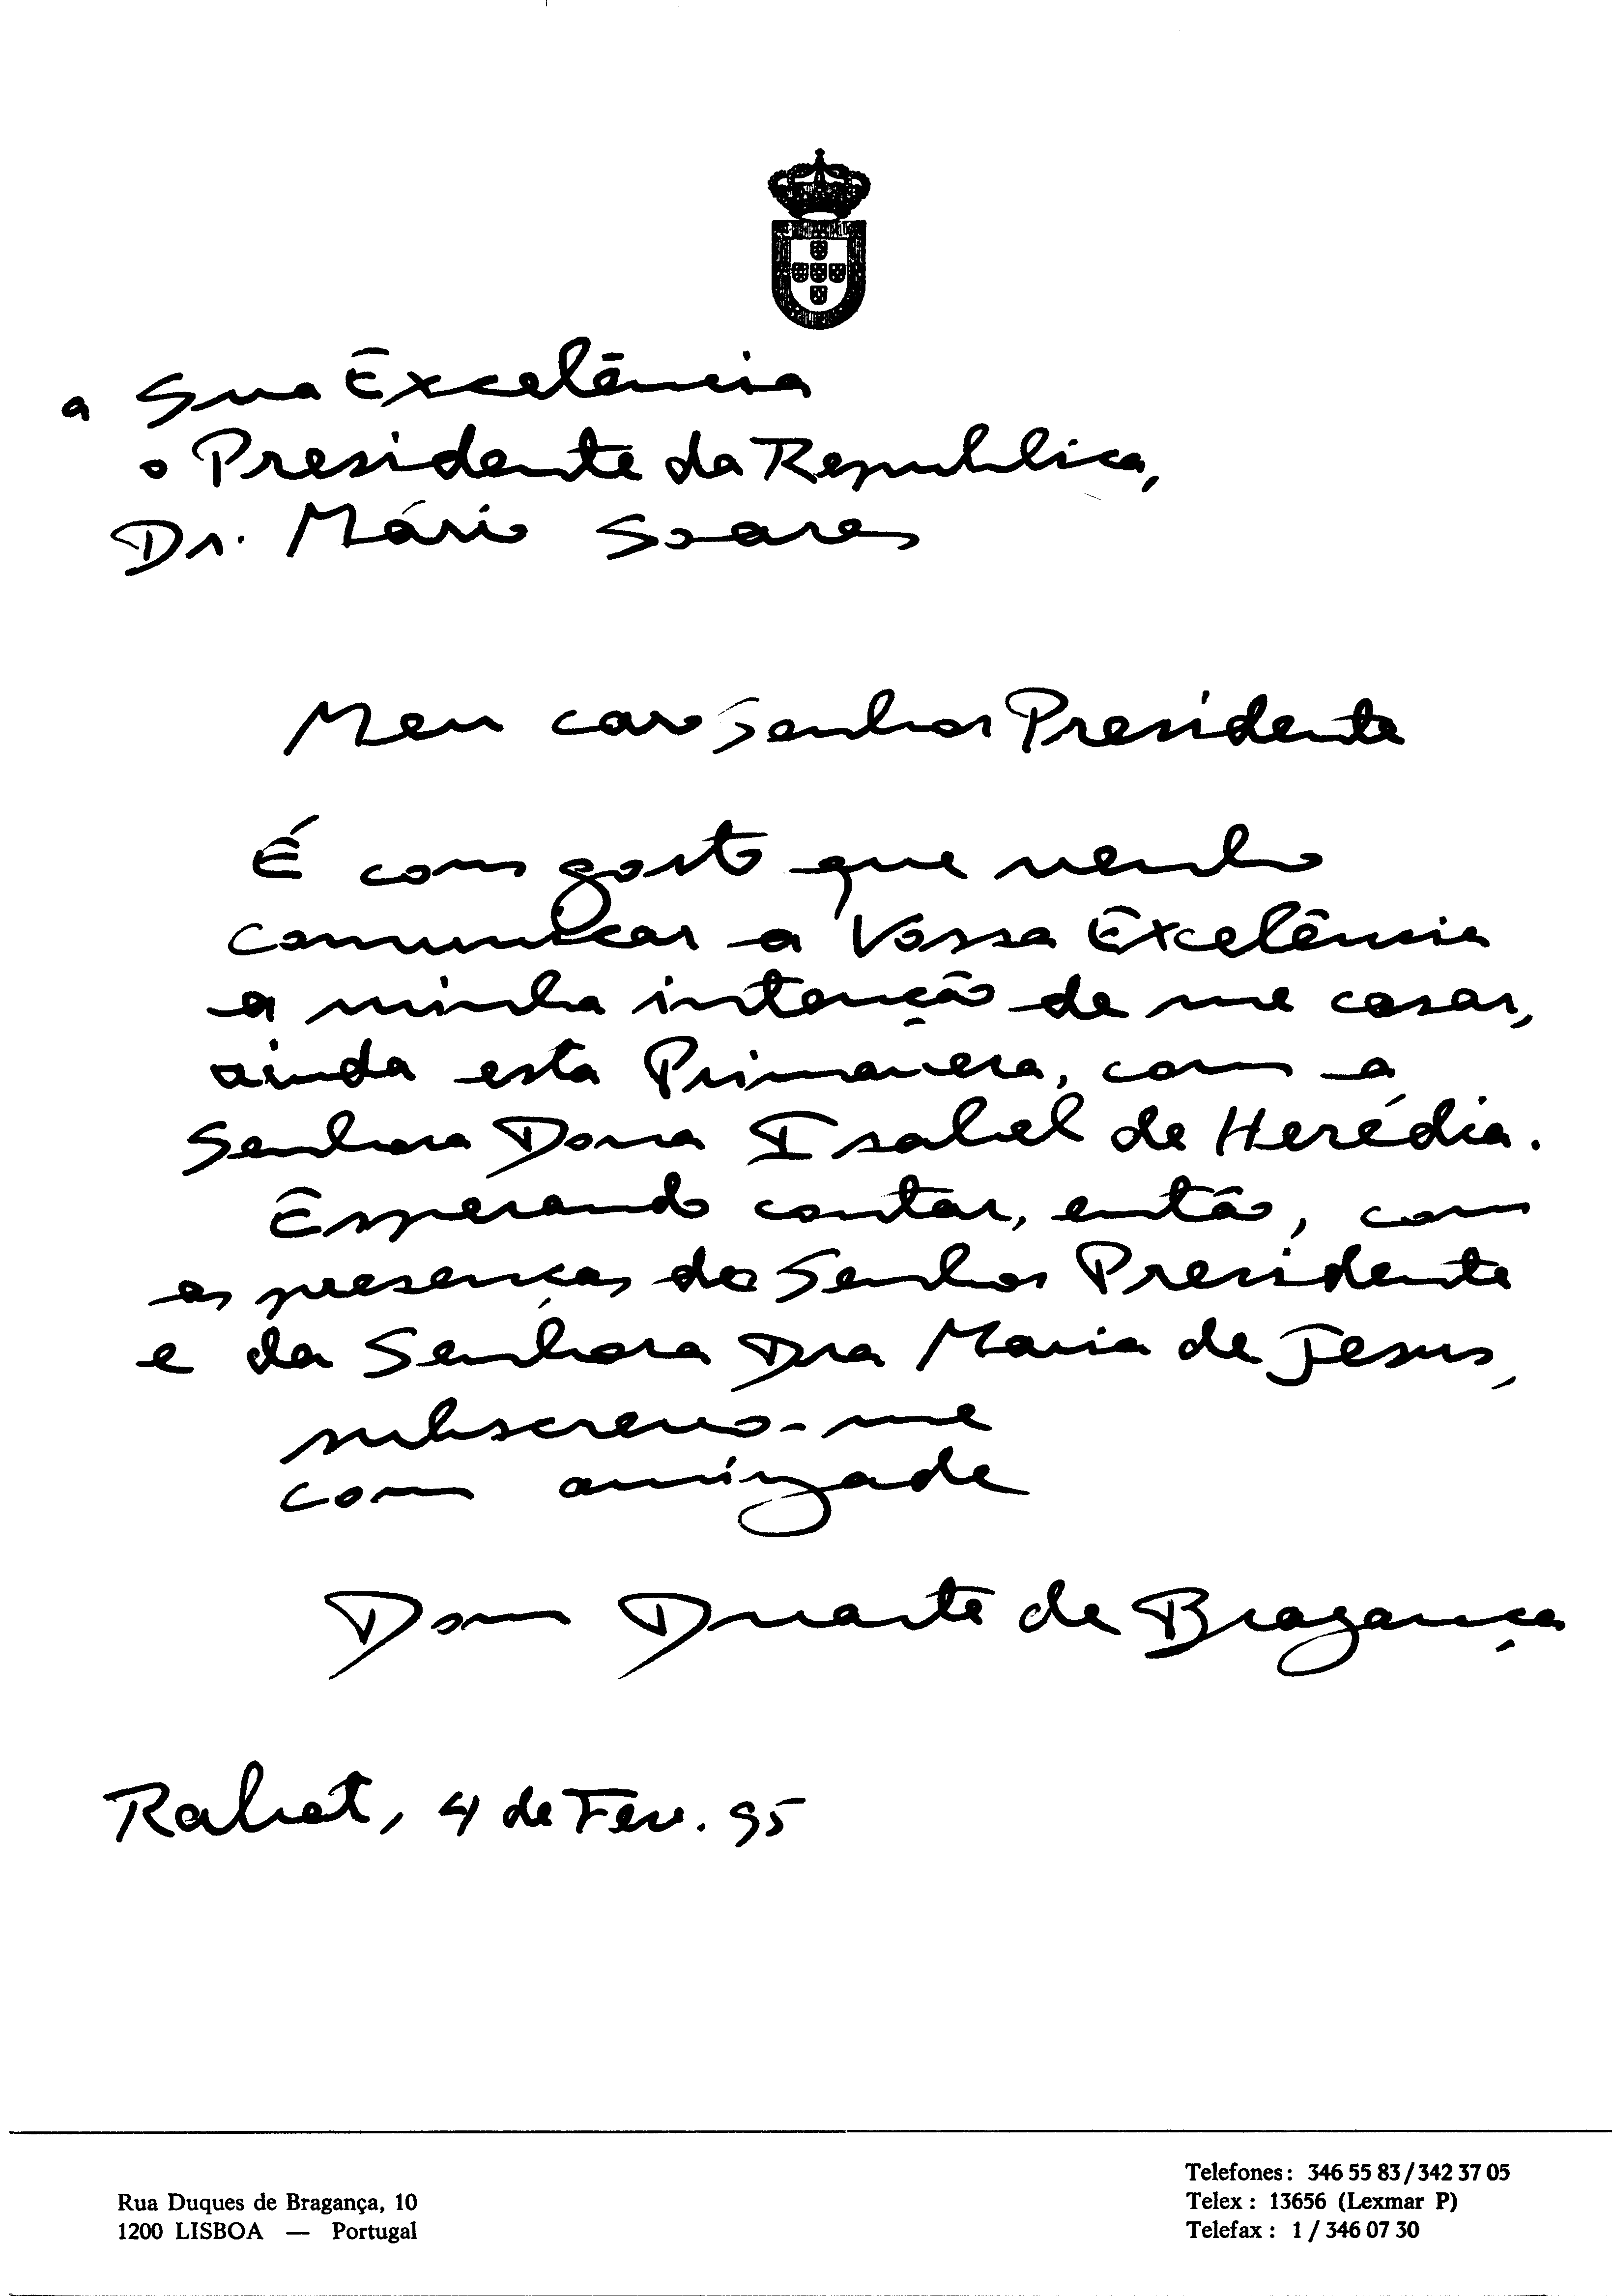 a Sua Excelência
o Presidente da Republica,
Dr. Mário Soares
Meu caro Senhor Presidente
É com gosto que venho
comunicar a Vossa Excelência
a minha intenção de me casar,
ainda esta Primavera, com a
Senhora Dona Isabel de Herédia.
Esperando contar, então, com
as presenças do Senhor Presidente
e da Senhora Dra Maria de Jesus,
subscrevo-me
com amizade
Dom Duarte de Bragança
Rabat, 4 de Fev. 95
Rua Duques de Bragança, 10
1200 LISBOA — Portugal
Telefones: 346 55 83 / 342 37 05
Telex : 13656 (Lexmar P)
Telefax : 1 / 346 07 30